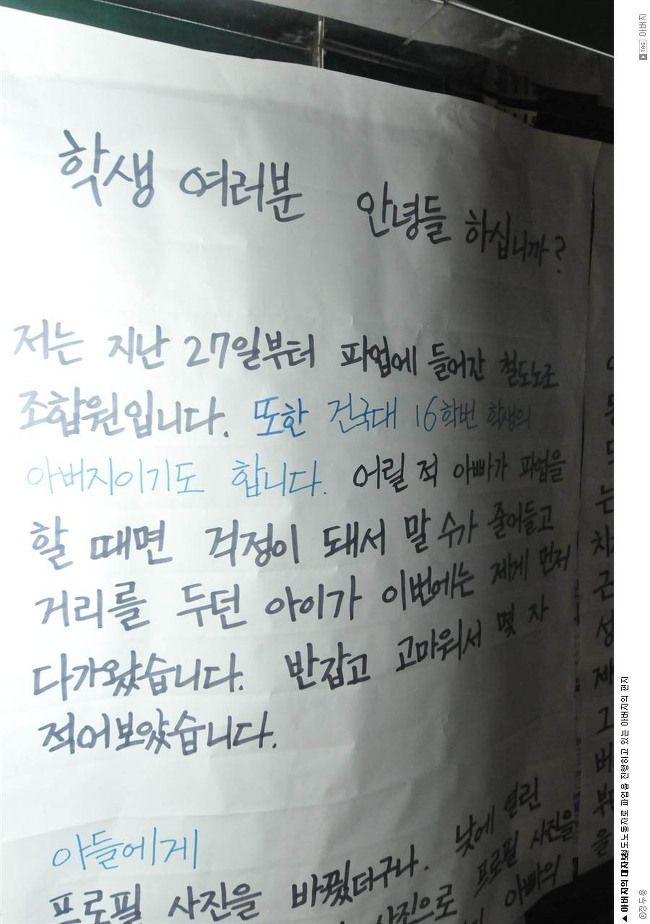 학생 여러분 안녕들 하십니까?
저는 지난 27일부터 파업에 들어간 철도노조
조합원입니다. 또한 건국대 16학번 학생의
아버지이기도 합니다. 어릴 적 아빠가 파업을
할 때면 걱정이 돼서 말 수가 줄어들고
거리를 두던 아이가 이번에는 제게 먼저
다가왔습니다. 반갑고 고마워서 몇 자
적어보았습니다.
아들에게
프로필 사진을 바꿨더구나. 낮에 열린
사진으로 프로필 사진을
아빠의
아버지
▲ 아버지의 대자보 철도노동자로 파업을 진행하고 있는 아버지의 편지